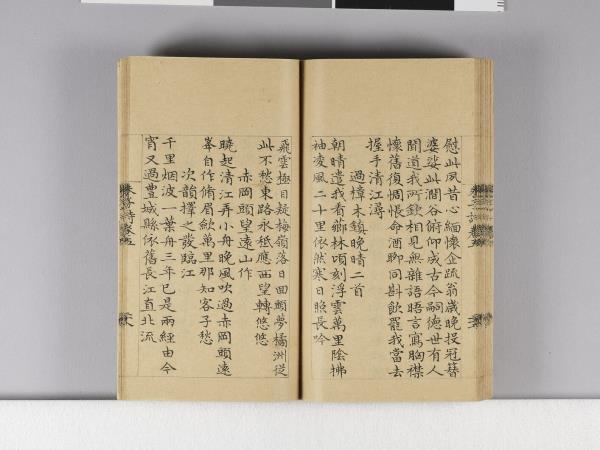 慰此夙昔心緬懷企疏翁歲晚投冠簪
婆娑此澗谷俯仰成古今嗣德世有人
聞道我所欽相見無雜語晤言寫胸襟
懷舊復惆悵命酒聊同斟飲罷我當去
握手清江潯
過樟木鎮晚晴二首
朝晴遣我看薌林頃刻浮雲萬里陰拂
袖凌風二十里依然寒日照長吟
飛雲極目疑梅嶺落日回頭夢橘洲從
此不愁東路永秪應西望轉悠悠
赤岡頭望遠山作
曉起清江弄小舟晚風吹過赤岡頭遠
峯自作脩眉歛萬里那知客子愁
次韻擇之發臨江
千里烟波一葉舟三年已是兩經由今
宵又過豐城縣依舊長江直北流